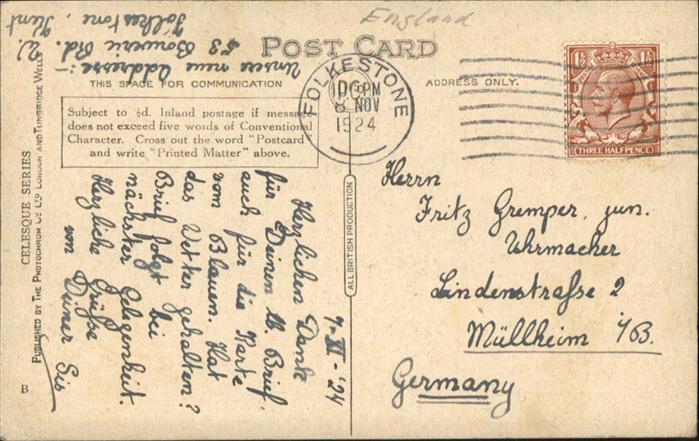 England
POST CARD
THIS SPACE FOR COMMUNICATION
ADDRESS ONLY.
Subject to ½d. Inland postage if message
does not exceed five words of Conventional
Character. Cross out the word "Postcard
and write "Printed Matter" above.
FOLKESTONE
PM
8 NOV
1924
THREE HALFPENCE
Unsere neue Addresse:-
53 Bouverie Rd. W.
Folkestone, Kent
CELESQUE SERIES
PUBLISHED BY THE PHOTOCHROM CO LTD LONDON AND TUNBRIDGE WELLS
ALL BRITISH PRODUCTION
B
9-XI-'24
Herzlichen Dank
für Deinen lb. Brief,
auch für die Karte
vom Blauen. Hat
das Wetter gehalten?
Brief folgt bei
nächster Gelegenheit.
Herzliche Grüße
von Deiner Sis
Herrn
Fritz Gremper, jun.
Uhrmacher
Lindenstraße 2
Müllheim i/B.
Germany